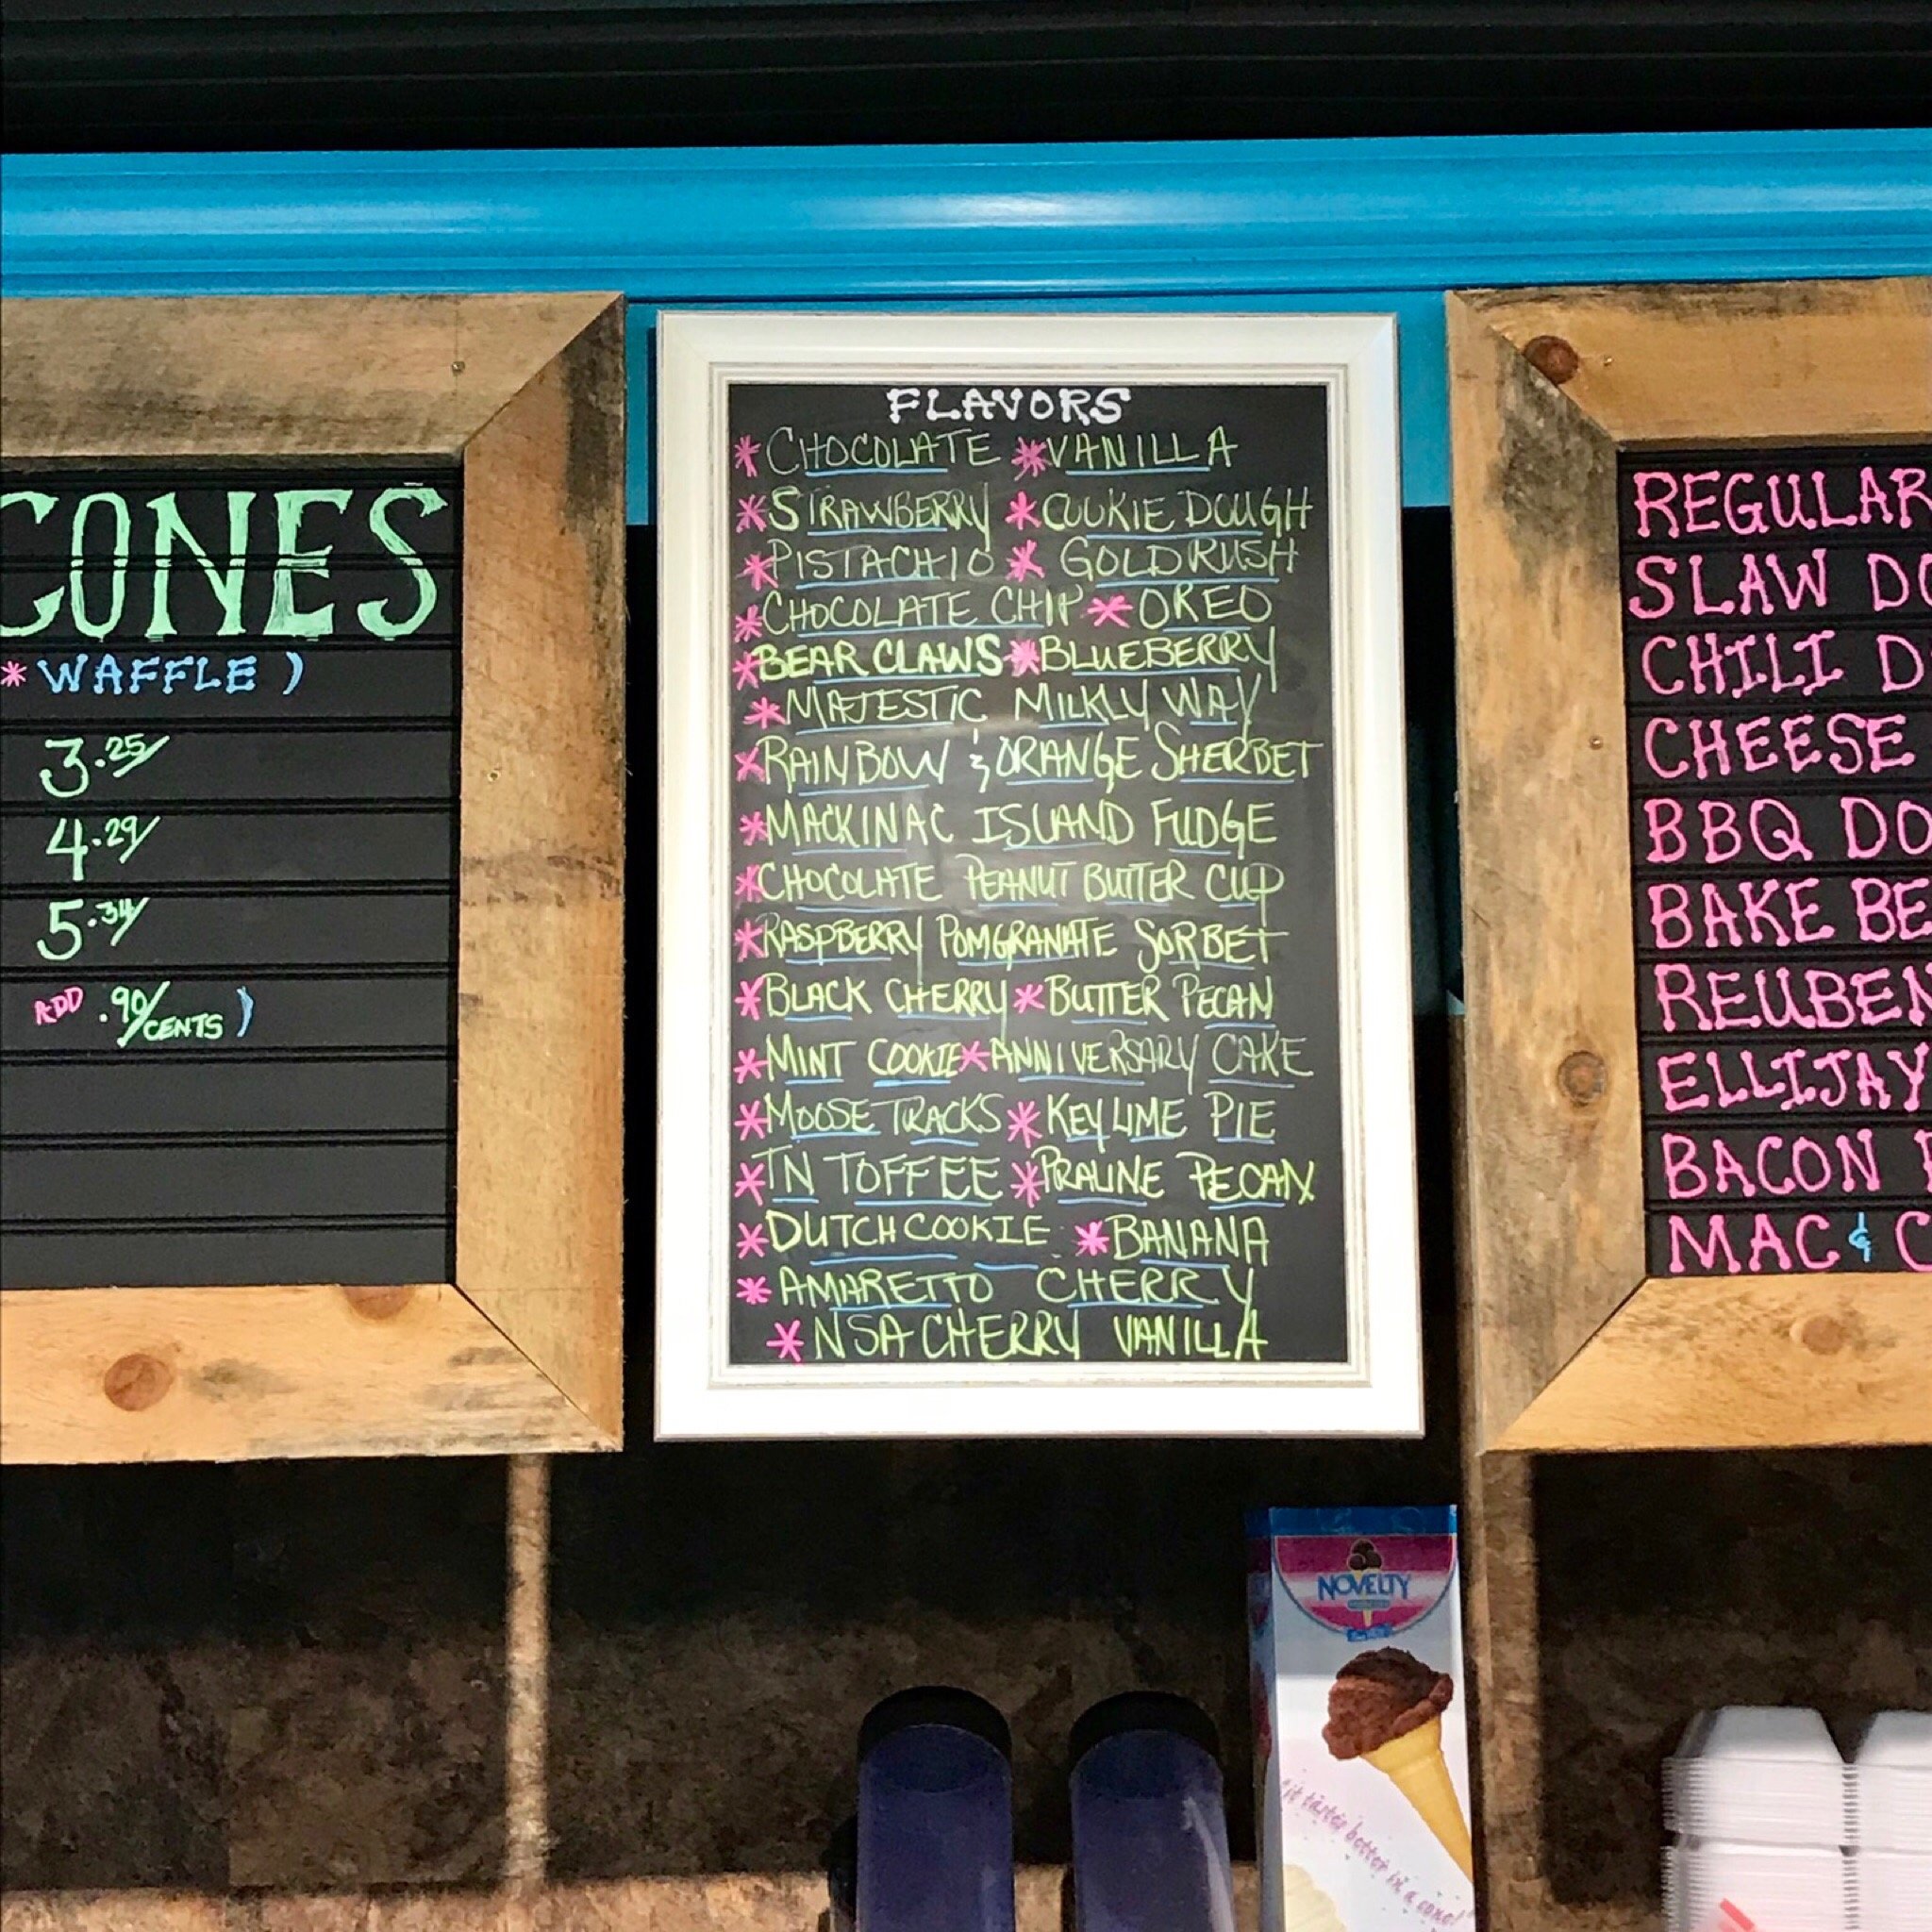 CONES
* WAFFLE )
3.25/
4.29/
5.34/
ADD .90/CENTS )
FLAVORS
* CHOCOLATE * VANILLA
* STRAWBERRY * COOKIE DOUGH
* PISTACHIO * GOLD RUSH
* CHOCOLATE CHIP * OREO
* BEAR CLAWS * BLUEBERRY
* MAJESTIC MILKLY WAY
* RAINBOW & ORANGE SHERBET
* MACKINAC ISLAND FUDGE
* CHOCOLATE PEANUT BUTTER CUP
* RASPBERRY POMGRANATE SORBET
* BLACK CHERRY * BUTTER PECAN
* MINT COOKIE * ANNIVERSARY CAKE
* MOOSE TRACKS * KEY LIME PIE
* TN TOFFEE * PRALINE PECAN
* DUTCH COOKIE * BANANA
* AMARETTO CHERRY
* NSA CHERRY VANILLA
REGULAR
SLAW DO
CHILI D
CHEESE
BBQ DO
BAKE BE
REUBEN
ELLIJAY
BACON
MAC & C
NOVELTY
it tastes better in a cone!